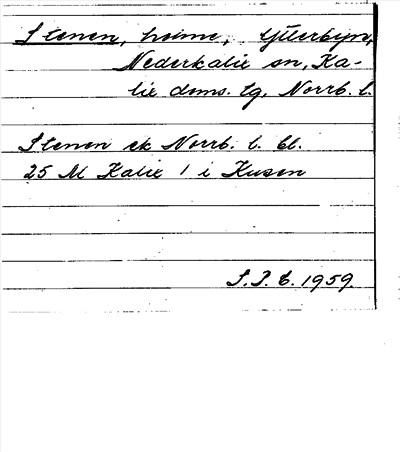 Stenen, holme, Ytterbyn,
Nederkalix sn, Ka-
lix doms. tg. Norrb. l.
Stenen ek Norrb. l. bl.
25 M Kalix 1 i Kusen
S.I.B. 1959.